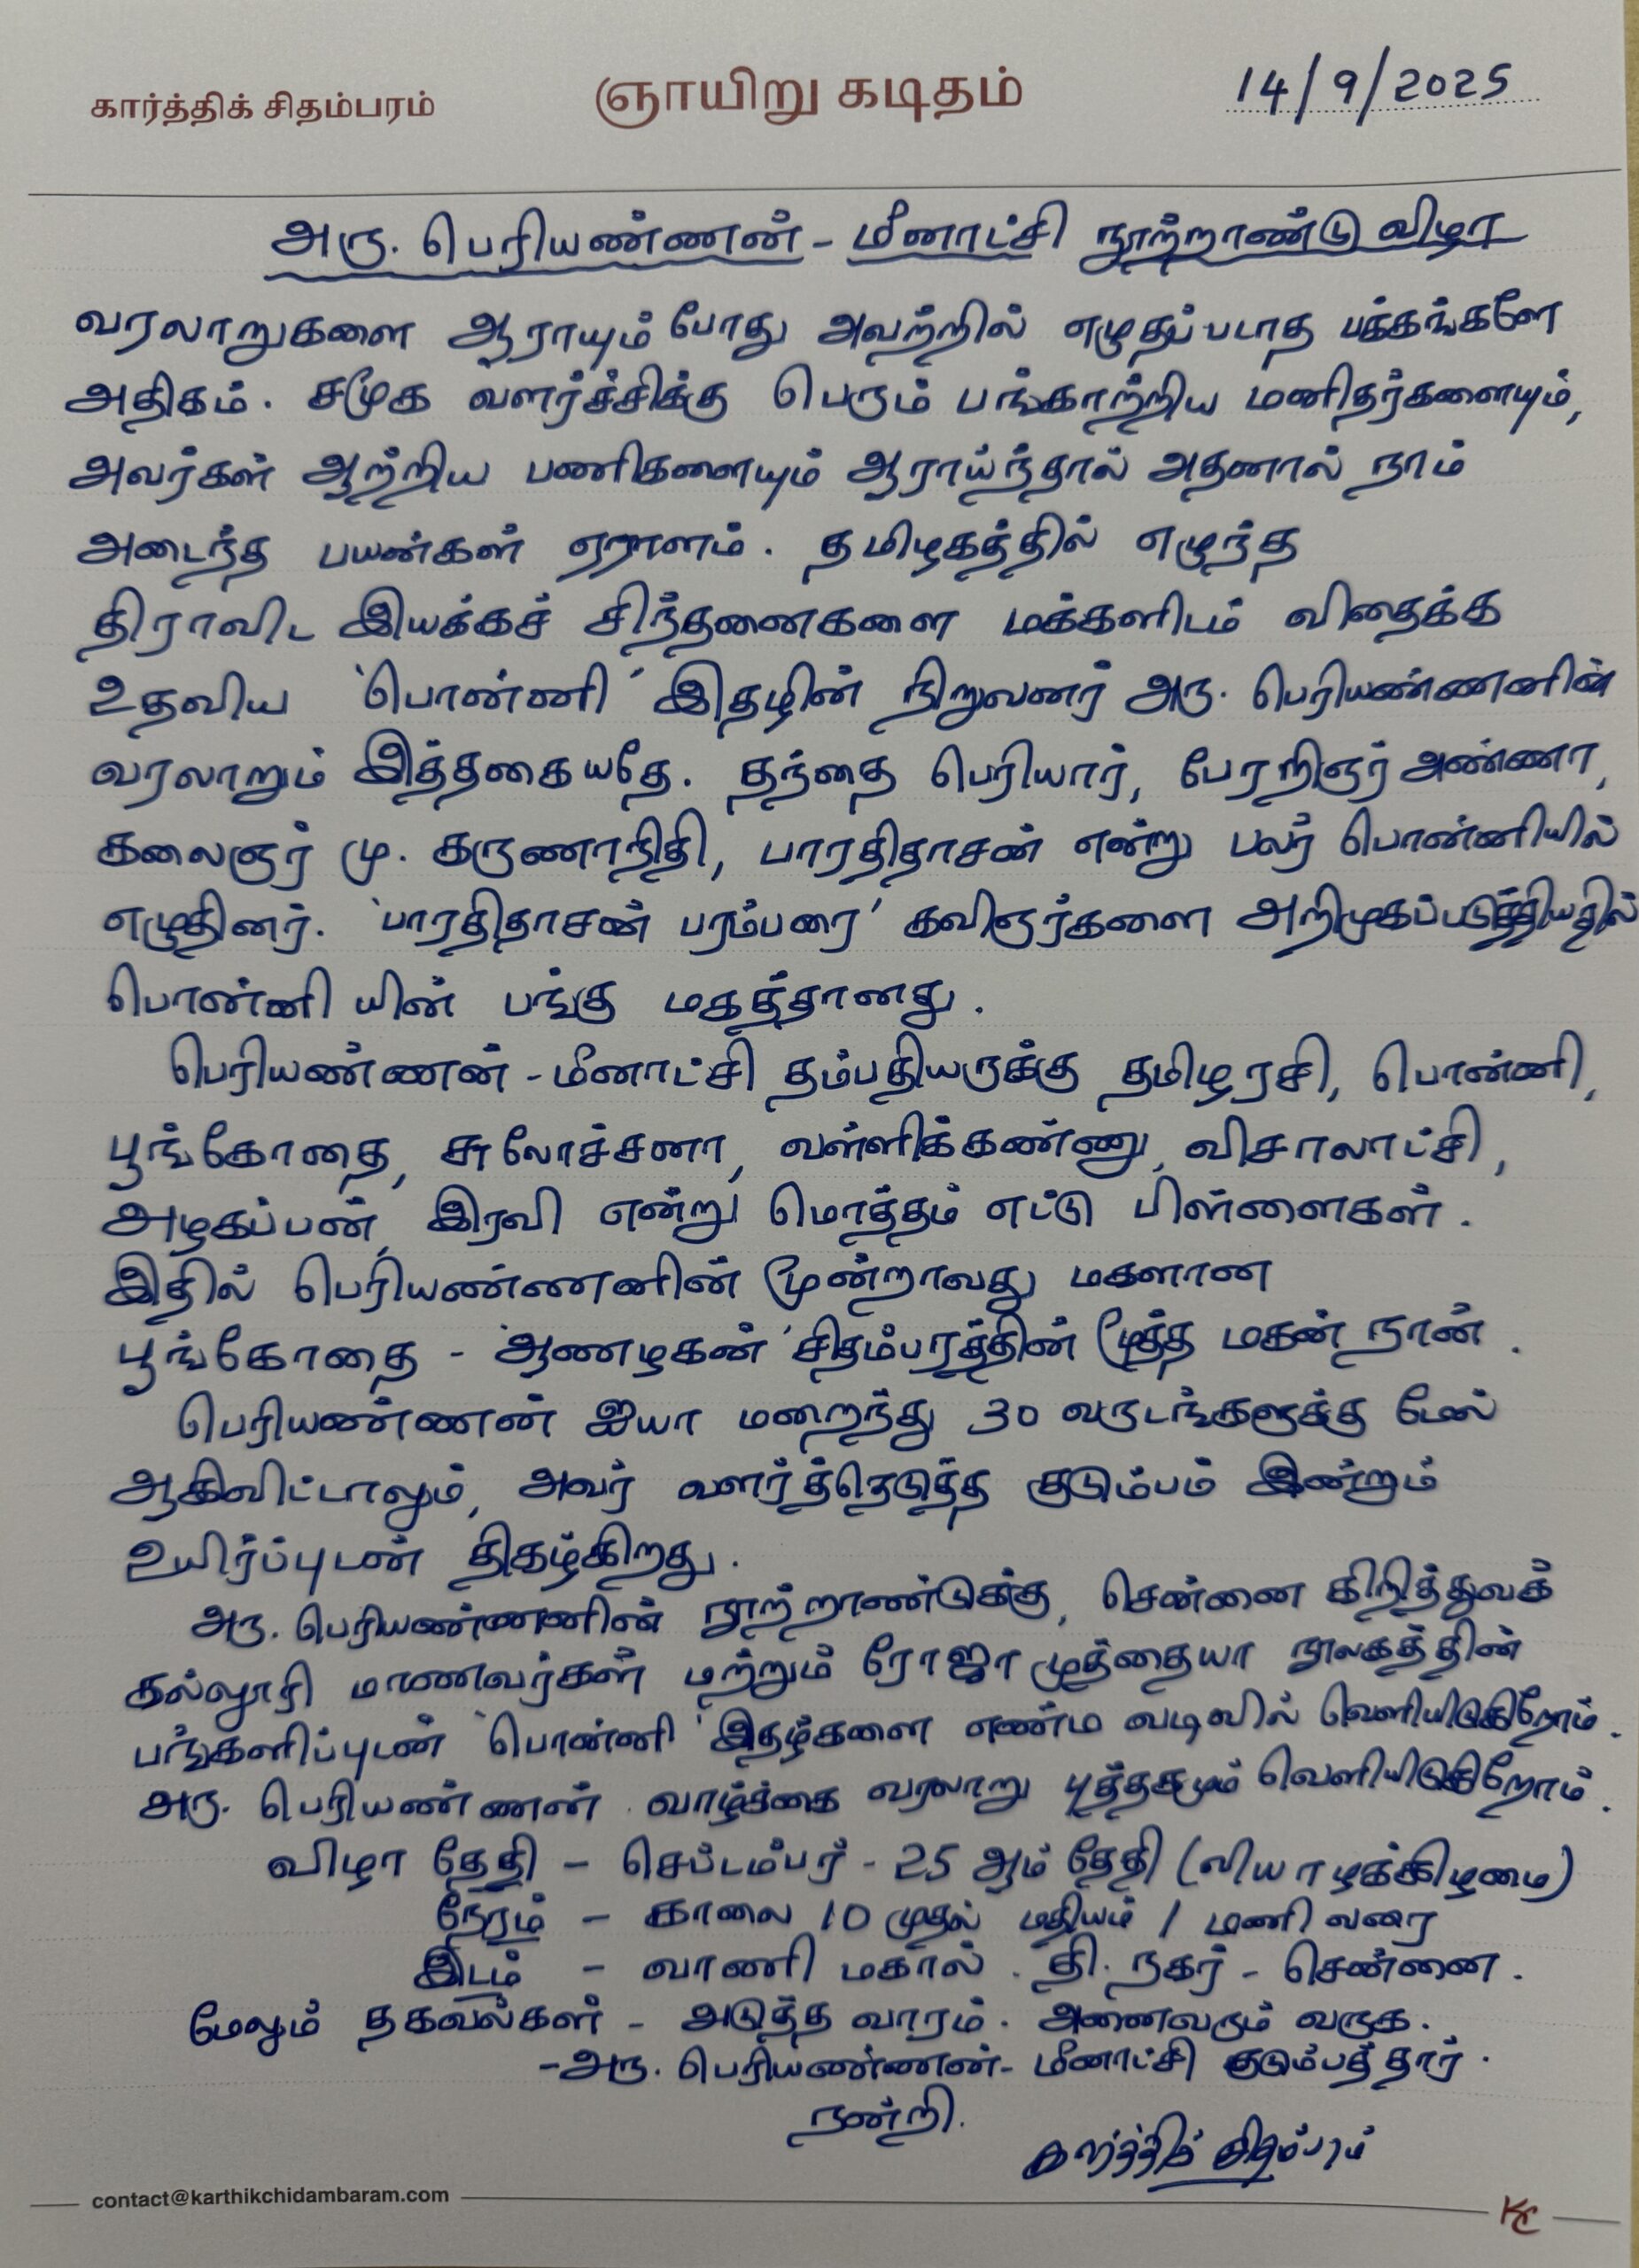 கார்த்திக் சிதம்பரம்
ஞாயிறு கடிதம்
14/9/2025
அரு. பெரியண்ணன் - மீனாட்சி நூற்றாண்டு விழா
வரலாறுகளை ஆராயும் போது அவற்றில் எழுதப்படாத பக்கங்களே
அதிகம். சமூக வளர்ச்சிக்கு பெரும் பங்காற்றிய மனிதர்களையும்,
அவர்கள் ஆற்றிய பணிகளையும் ஆராய்ந்தால் அதனால் நாம்
அடைந்த பயன்கள் ஏராளம். தமிழகத்தில் எழுந்த
திராவிட இயக்கச் சிந்தனைகளை மக்களிடம் விதைக்க
உதவிய 'பொன்னி' இதழின் நிறுவனர் அரு. பெரியண்ணனின்
வரலாறும் இத்தகையதே. தந்தை பெரியார், பேரறிஞர் அண்ணா,
கலைஞர் மு. கருணாநிதி, பாரதிதாசன் என்று பலர் பொன்னியில்
எழுதினர். 'பாரதிதாசன் பரம்பரை' கவிஞர்களை அறிமுகப்படுத்தியதில்
பொன்னி யின் பங்கு மகத்தானது.
பெரியண்ணன் - மீனாட்சி தம்பதியருக்கு தமிழரசி, பொன்னி,
பூங்கோதை, சுலோச்சனா, வள்ளிக்கண்ணு, விசாலாட்சி,
அழகப்பன், இரவி என்று மொத்தம் எட்டு பிள்ளைகள்.
இதில் பெரியண்ணனின் மூன்றாவது மகளான
பூங்கோதை - 'ஆணழகன்' சிதம்பரத்தின் மூத்த மகன் நான்.
பெரியண்ணன் ஐயா மறைந்து 30 வருடங்களுக்கு மேல்
ஆகிவிட்டாலும், அவர் வளர்த்தெடுத்த குடும்பம் இன்றும்
உயிர்ப்புடன் திகழ்கிறது.
அரு. பெரியண்ணனின் நூற்றாண்டுக்கு, சென்னை கிறித்துவக்
கல்லூரி மாணவர்கள் மற்றும் ரோஜா முத்தையா நூலகத்தின்
பங்களிப்புடன் 'பொன்னி' இதழ்களை எண்ம வடிவில் வெளியிடுகிறோம்.
அரு. பெரியண்ணன் வாழ்க்கை வரலாறு புத்தகமும் வெளியிடுகிறோம்.
விழா தேதி - செப்டம்பர் - 25 ஆம் தேதி (வியாழக்கிழமை)
நேரம் - காலை 10 முதல் மதியம் 1 மணி வரை
இடம் - வாணி மகால். தி. நகர் - சென்னை.
மேலும் தகவல்கள் - அடுத்த வாரம். அனைவரும் வருக.
- அரு. பெரியண்ணன் - மீனாட்சி குடும்பத்தார்.
நன்றி.
கார்த்திக் சிதம்பரம்
contact@karthikchidambaram.com
KC